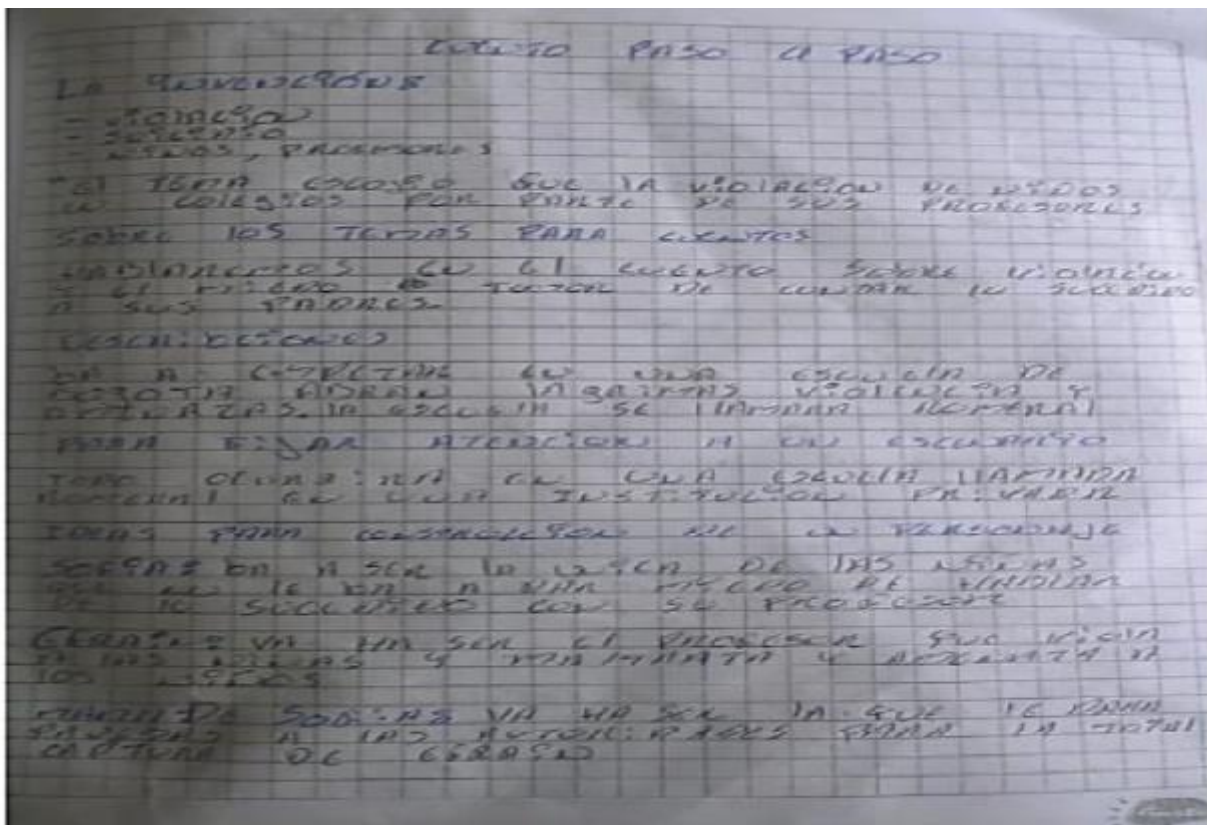 CUENTO PASO A PASO
LA INVENCIÓN:
- VIOLACIÓN
- SILENCIO
- NIÑOS, PROFESORES
EL TEMA ESCOGIDO FUE LA VIOLACION DE NIÑOS
EN COLEGIOS POR PARTE DE SUS PROFESORES
SOBRE LOS TEMAS PARA CUENTOS
HABLAREMOS EN EL CUENTO SOBRE VIOLENCIA
Y EL MIEDO O TEMOR DE CONTAR LO SUCEDIDO
A SUS PADRES
DESCRIPCIONES
BA A EMPEZAR EN UNA ESCUELA DE
ABRAN LAGRIMAS VIOLENCIA Y
AMENAZAS. LA ESCUELA SE LLAMARA
PARA FIJAR ATENCION A UN
TODO OCURRIRA EN UNA ESCUELA LLAMADA
EN UNA INSTITUCION PRIVADA
IDEAS PARA CONSTRUCCION DE UN PERSONAJE
SOFIA: BA A SER LA UNICA DE LAS NIÑAS
QUE NO LE BA A DAR MIEDO DE HABLAR
DE LO SUCEDIDO CON SU PROFESOR
EFRAIN: VA HA SER EL PROFESOR QUE VIOLA
A LAS NIÑAS Y MALTRATA Y A
LOS NIÑOS
MAMA DE SOFIA: VA HA SER LA QUE LE DARA
PRUEBAS A LAS AUTORIDADES PARA LA TOTAL
CAPTURA DE EFRAIN